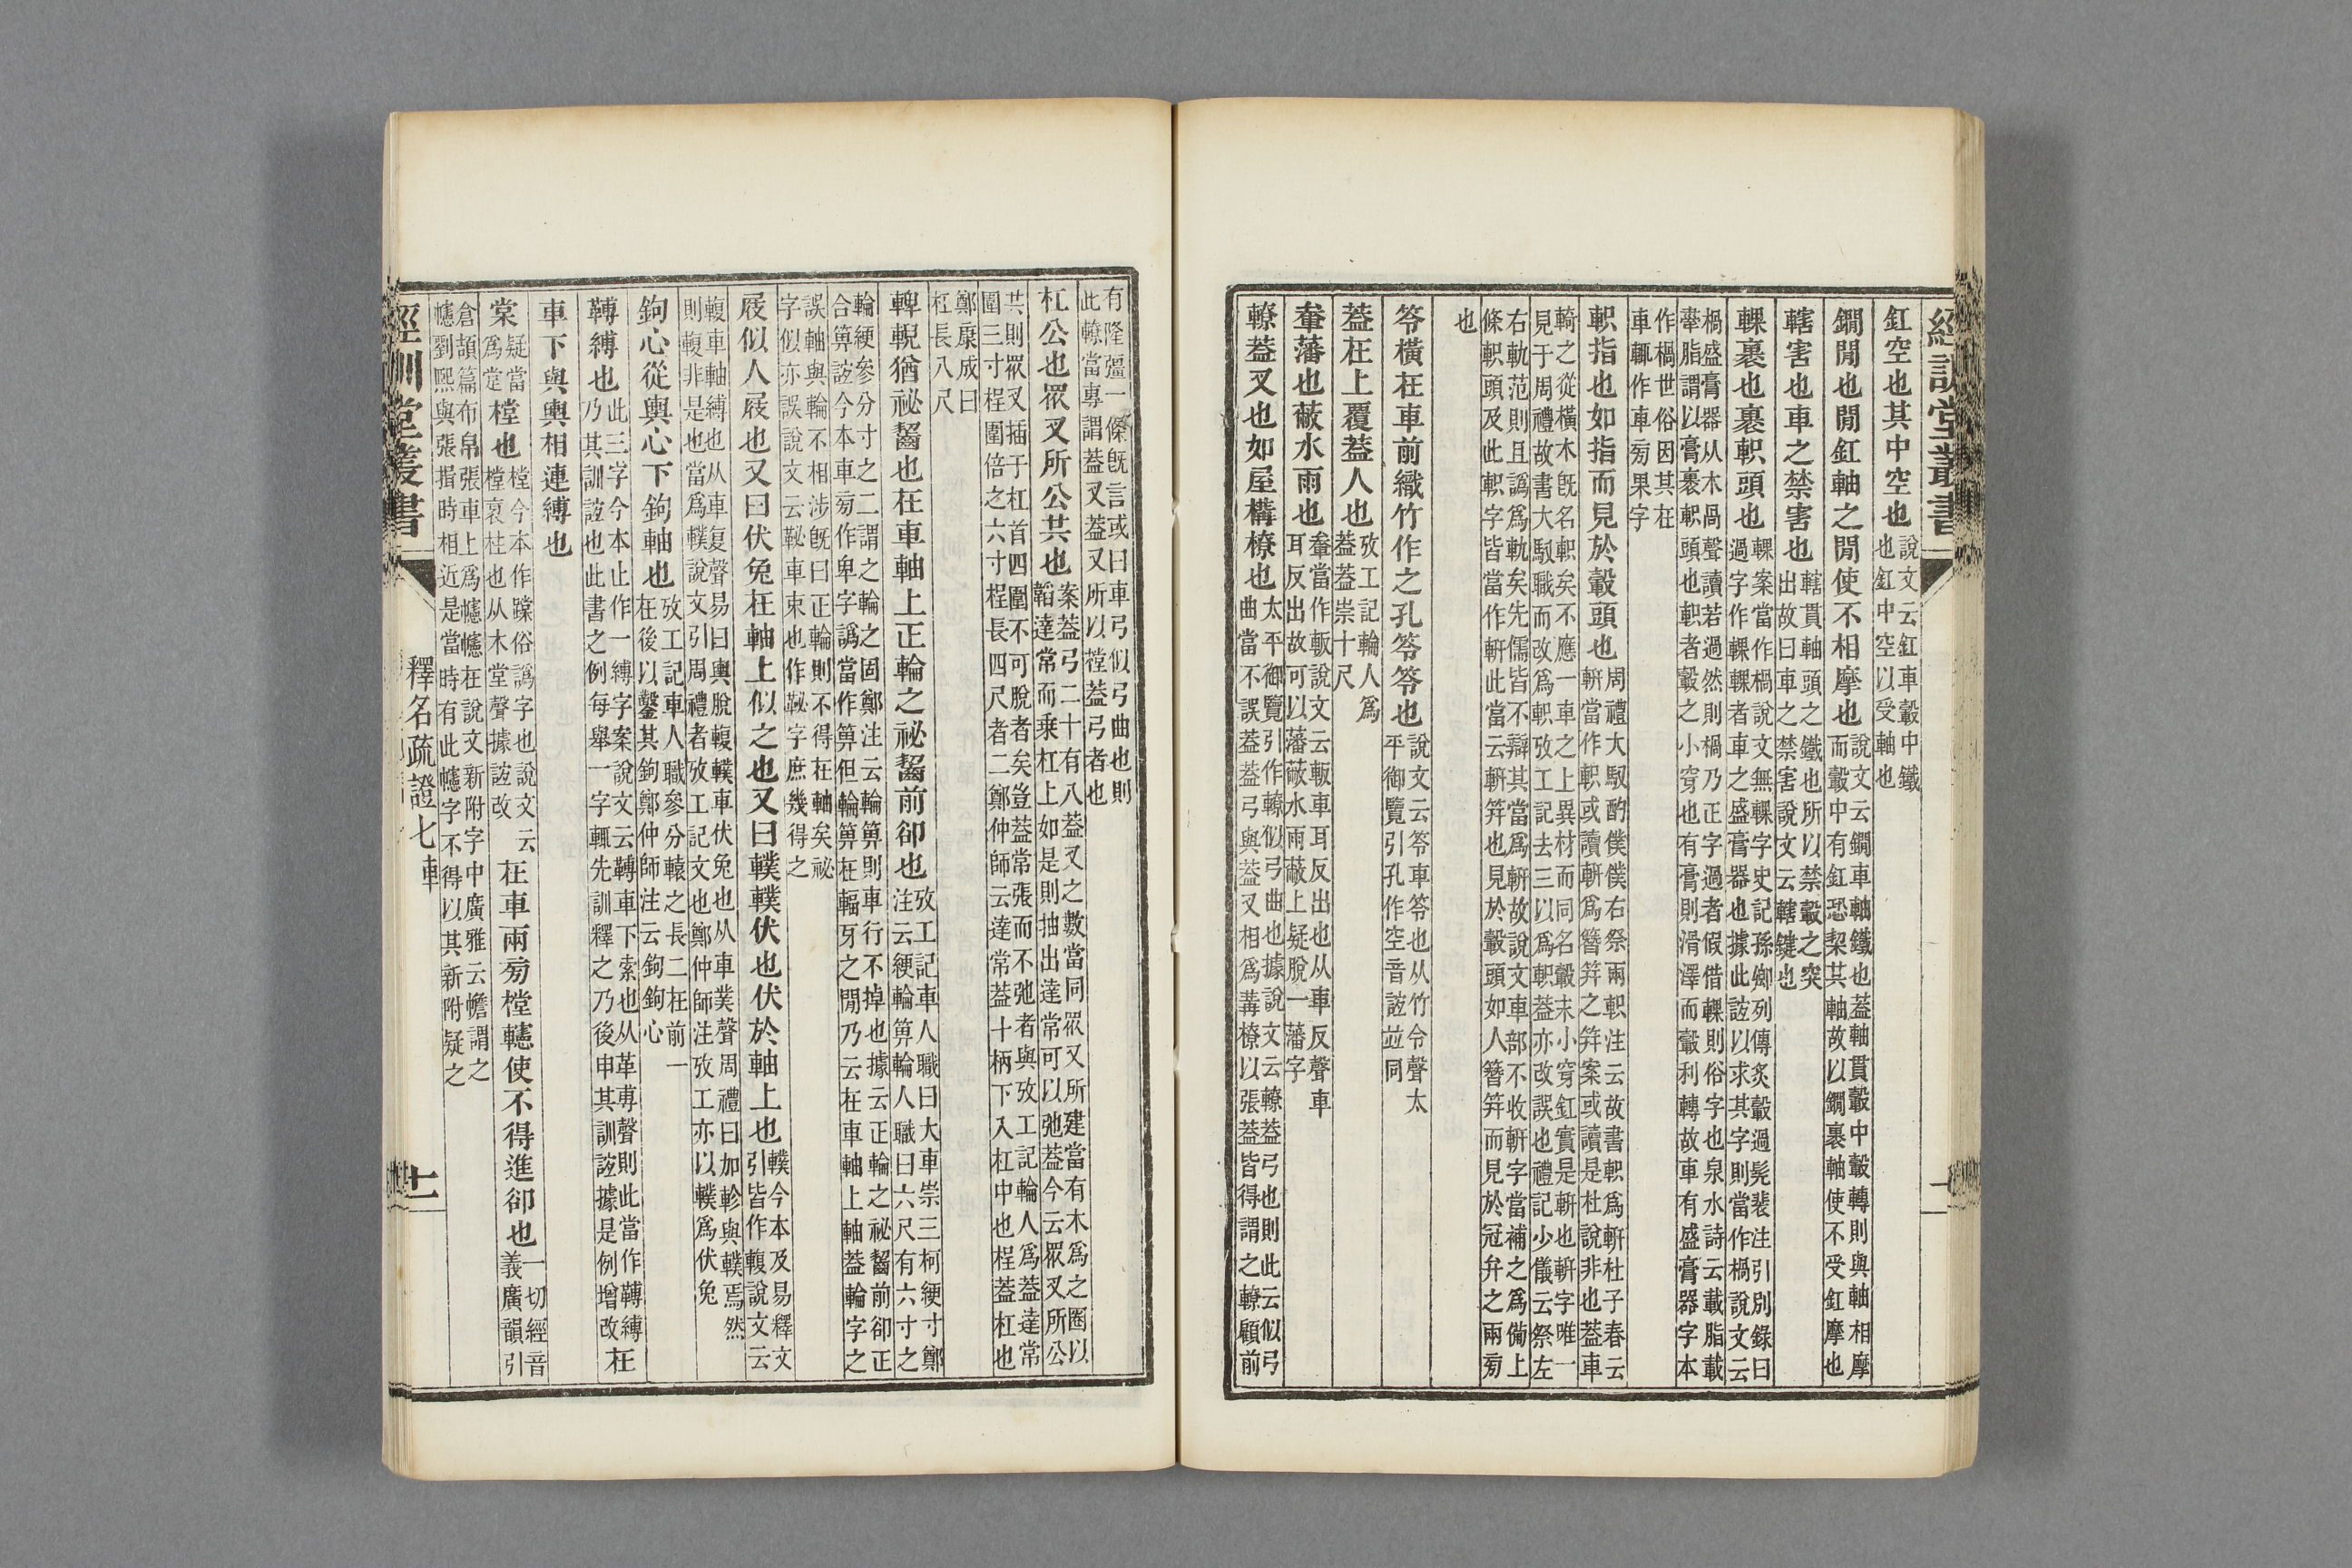 經訓堂叢書
釭空也其中空也說文云釭車轂中鐵
也釭中空以受軸也
鐧閒也閒釭軸之閒使不相摩也說文云鐧車軸鐵也葢軸貫轂中轂轉則與軸相摩
而轂中有釭恐栔其軸故以鐧裹軸使不受釭摩也
轄害也車之禁害也轄貫軸頭之鐵也所以禁轂之突
出故曰車之禁害說文云轄鍵也
輠裹也裹軹頭也輠案當作楇說文無輠字史記孫卿列傳炙轂過髡裴注引別錄曰
過字作輠輠者車之盛膏器也據此䛐以求其字則當作楇說文云
楇盛膏器从木咼聲讀若過然則楇乃正字過者假借輠則俗字也泉水詩云載脂載
舝脂謂以膏裹軹頭也軹者轂之小穿也有膏則滑澤而轂利轉故車有盛膏器字本
作楇世俗因其在
車輒作車㫄果字
軹指也如指而見於轂頭也周禮大馭酌僕僕右祭兩軹注云故書軹爲軿杜子春云
軿當作軹或讀軿爲簪筓之筓案或讀是杜說非也葢車
輢之從橫木旣名軹矣不應一車之上異材而同名轂末小穿釭實是軿也軿字唯一
見于周禮故書大馭職而改爲軹攷工記去三以爲軹葢亦改誤也禮記少儀云祭左
右軌范則且譌爲軌矣先儒皆不辯其當爲軿故說文車部不收軿字當補之爲僃上
條軹頭及此軹字皆當作軿此當云軿筓也見於轂頭如人簪筓而見於冠弁之兩㫄
也
笭橫在車前織竹作之孔笭笭也說文云笭車笭也从竹令聲太
平御覽引孔作空音䛐竝同
葢在上覆葢人也攷工記輪人爲
葢葢崇十尺
軬藩也蔽水雨也軬當作䡊說文云䡊車耳反出也从車反聲車
耳反出故可以藩蔽水雨蔽上疑脫一藩字
轑葢叉也如屋構橑也太平御覽引作轑似弓曲也據說文云轑葢弓也則此云似弓
曲當不誤葢葢弓與葢叉相爲冓橑以張葢皆得謂之轑顧前
有隆彊一條旣言或曰車弓似弓曲也則
此轑當專謂葢叉葢叉所以樘葢弓者也
杠公也眾叉所公共也案葢弓二十有八葢叉之數當同眾叉所建當有木爲之圈以
韜達常而乘杠上如是則抽出達常可以弛葢今云眾叉所公
共則眾叉插于杠首四圍不可脫者矣豈葢常張而不弛者與攷工記輪人爲葢達常
圍三寸桯圍倍之六寸桯長四尺者二鄭仲師云達常葢十柄下入杠中也桯葢杠也
鄭康成曰
杠長八尺
䡟輗猶祕齧也在車軸上正輪之祕齧前卻也攷工記車人職曰大車崇三柯綆寸鄭
注云綆輪箅輪人職曰六尺有六寸之
輪綆參分寸之二謂之輪之固鄭注云輪箅則車行不掉也據云正輪之祕齧前卻正
合箅䛐今本車㫄作卑字譌當作箅但輪箅在輻牙之閒乃云在車軸上軸葢輪字之
誤軸與輪不相涉旣曰正輪則不得在軸矣祕
字似亦誤說文云䩛車束也作䩛字庶幾得之
屐似人屐也又曰伏兔在軸上似之也又曰轐轐伏也伏於軸上也轐今本及易釋文
引皆作輹說文云
輹車軸縛也从車复聲易曰輿脫輹轐車伏兔也从車菐聲周禮曰加軫與轐焉然
則輹非是也當爲轐說文引周禮者攷工記文也鄭仲師注攷工亦以轐爲伏兔
鉤心從輿心下鉤軸也攷工記車人職參分轅之長二在前一
在後以鑿其鉤鄭仲師注云鉤鉤心
轉縛也此三字今本止作一縛字案說文云轉車下索也从革尃聲則此當作轉縛
乃其訓䛐也此書之例每舉一字輒先訓釋之乃後申其訓䛐據是例增改在
車下與輿相連縛也
棠疑當
爲堂樘也樘今本作䠀俗譌字也說文云
樘衺柱也从木堂聲據䛐改在車兩㫄樘幰使不得進卻也一切經音
義廣韻引
倉頡篇布帛張車上爲幰幰在說文新附字中廣雅云幨謂之
幰劉熙與張揖時相近是當時有此幰字不得以其新附疑之
經訓堂叢書
釋名疏證七車
十一